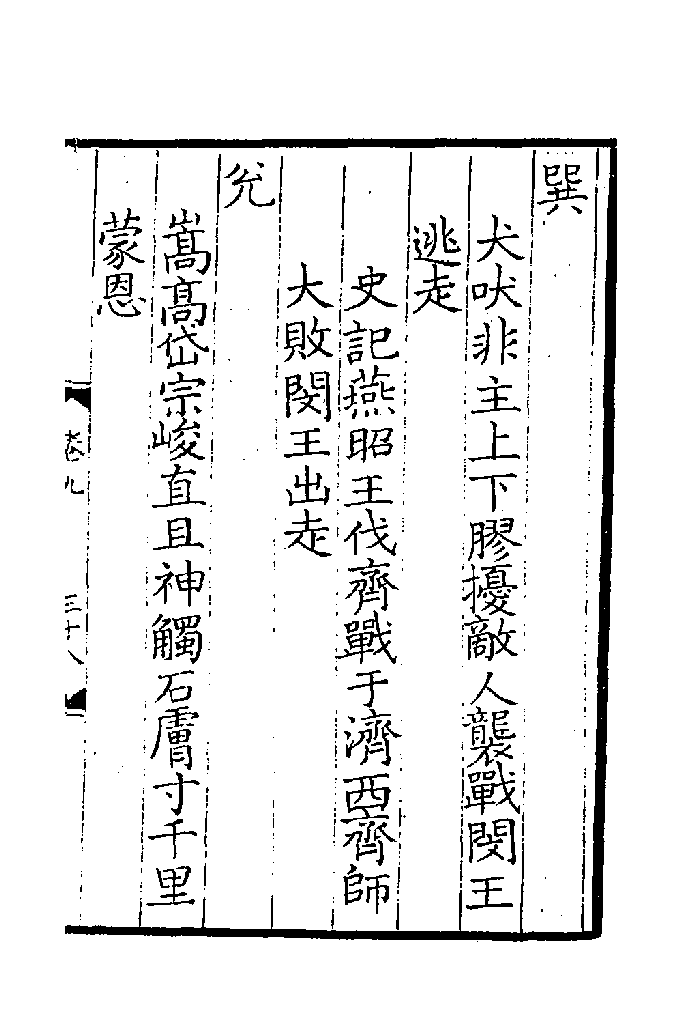 巽
犬吠非主上下膠擾敵人襲戰閔王
逃走
史記燕昭王伐齊戰于濟西齊師
大敗閔王出走
兊
嵩髙岱宗峻直且神觸石膚寸千里
蒙恩
卷九 三十八